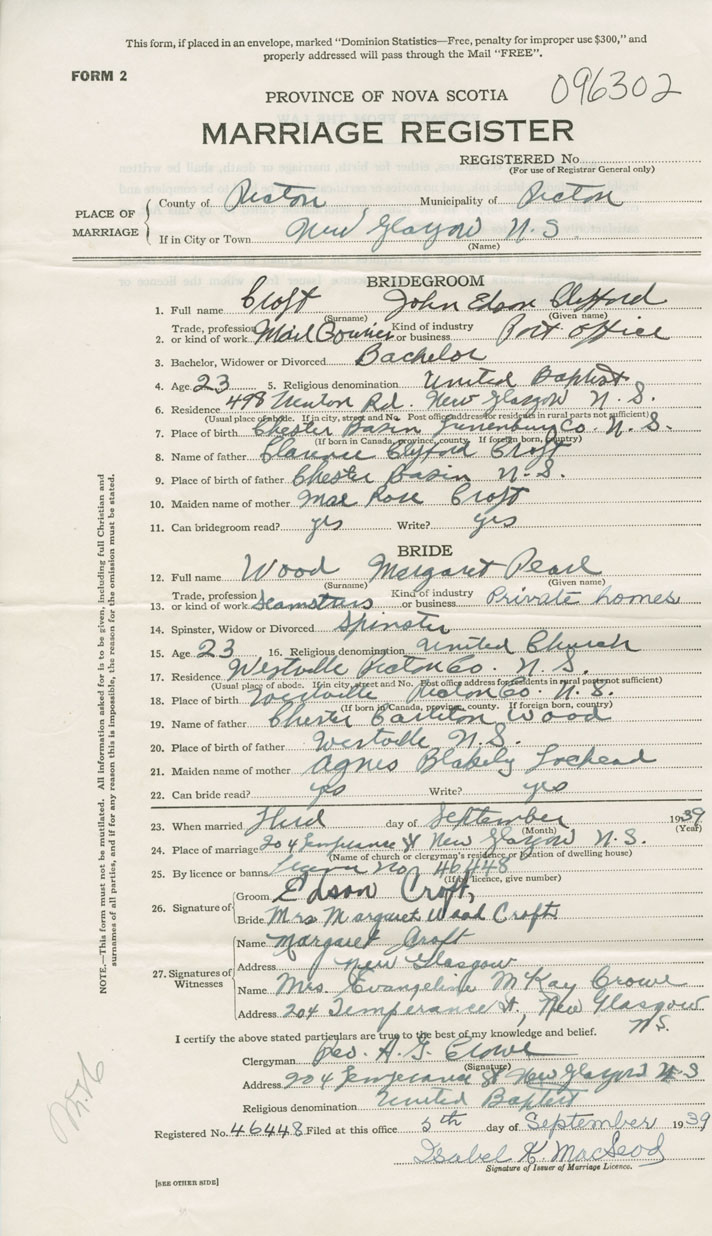 This form, if placed in an envelope, marked "Dominion Statistics—Free, penalty for improper use $300," and
properly addressed will pass through the Mail "FREE".
FORM 2
096302
PROVINCE OF NOVA SCOTIA
MARRIAGE REGISTER
REGISTERED No.
(For use of Registrar General only)
PLACE OF MARRIAGE
County of Pictou Municipality of Pictou
If in City or Town New Glasgow N.S.
(Name)
BRIDEGROOM
1. Full name Croft John Edson Clifford
(Surname) (Given name)
2. Trade, profession or kind of work Mail Courier Kind of industry or business Post Office
3. Bachelor, Widower or Divorced Bachelor
4. Age 23 5. Religious denomination United Baptist
6. Residence 498 Rd. New Glasgow N.S.
(Usual place of abode. If in city, street and No. Post office address for residents in rural parts not sufficient)
7. Place of birth Chester Basin Lunenburg Co. N.S.
(If born in Canada, province, county. If foreign born, country)
8. Name of father Clarence Clifford Croft
9. Place of birth of father Chester Basin N.S.
10. Maiden name of mother Mae Rose Croft
11. Can bridegroom read? yes Write? yes
BRIDE
12. Full name Wood Margaret Pearl
(Surname) (Given name)
13. Trade, profession or kind of work Seamstress Kind of industry or business Private homes
14. Spinster, Widow or Divorced Spinster
15. Age 23 16. Religious denomination United Church
17. Residence Westville Pictou Co. N.S.
(Usual place of abode. If in city, street and No. Post office address for residents in rural parts not sufficient)
18. Place of birth Westville Pictou Co. N.S.
(If born in Canada, province, county. If foreign born, country)
19. Name of father Chester Carleton Wood
20. Place of birth of father Westville N.S.
21. Maiden name of mother Agnes Blakely Lochead
22. Can bride read? yes Write? yes
23. When married Third day of September 1939
(Month) (Year)
24. Place of marriage 204 Temperance St New Glasgow N.S.
(Name of church or clergyman's residence or location of dwelling house)
25. By licence or banns License No. 46448
(If by licence, give number)
26. Signature of
Groom Edson Croft,
Bride Mrs Margaret Wood Croft
27. Signatures of Witnesses
Name Margaret Croft
Address New Glasgow
Name Mrs. Evangeline McKay Crowe
Address 204 Temperance St, New Glasgow
N.S.
I certify the above stated particulars are true to the best of my knowledge and belief.
Clergyman Rev. A. G. Crowe
(Signature)
Address 204 Temperance St New Glasgow N.S
Religious denomination United Baptist
Registered No. 46448 Filed at this office 5th day of September 1939
Isabel K. MacLeod
Signature of Issuer of Marriage Licence.
[SEE OTHER SIDE]
NOTE.—This form must not be mutilated. All information asked for is to be given, including full Christian and
surnames of all parties, and if for any reason this is impossible, the reason for the omission must be stated.